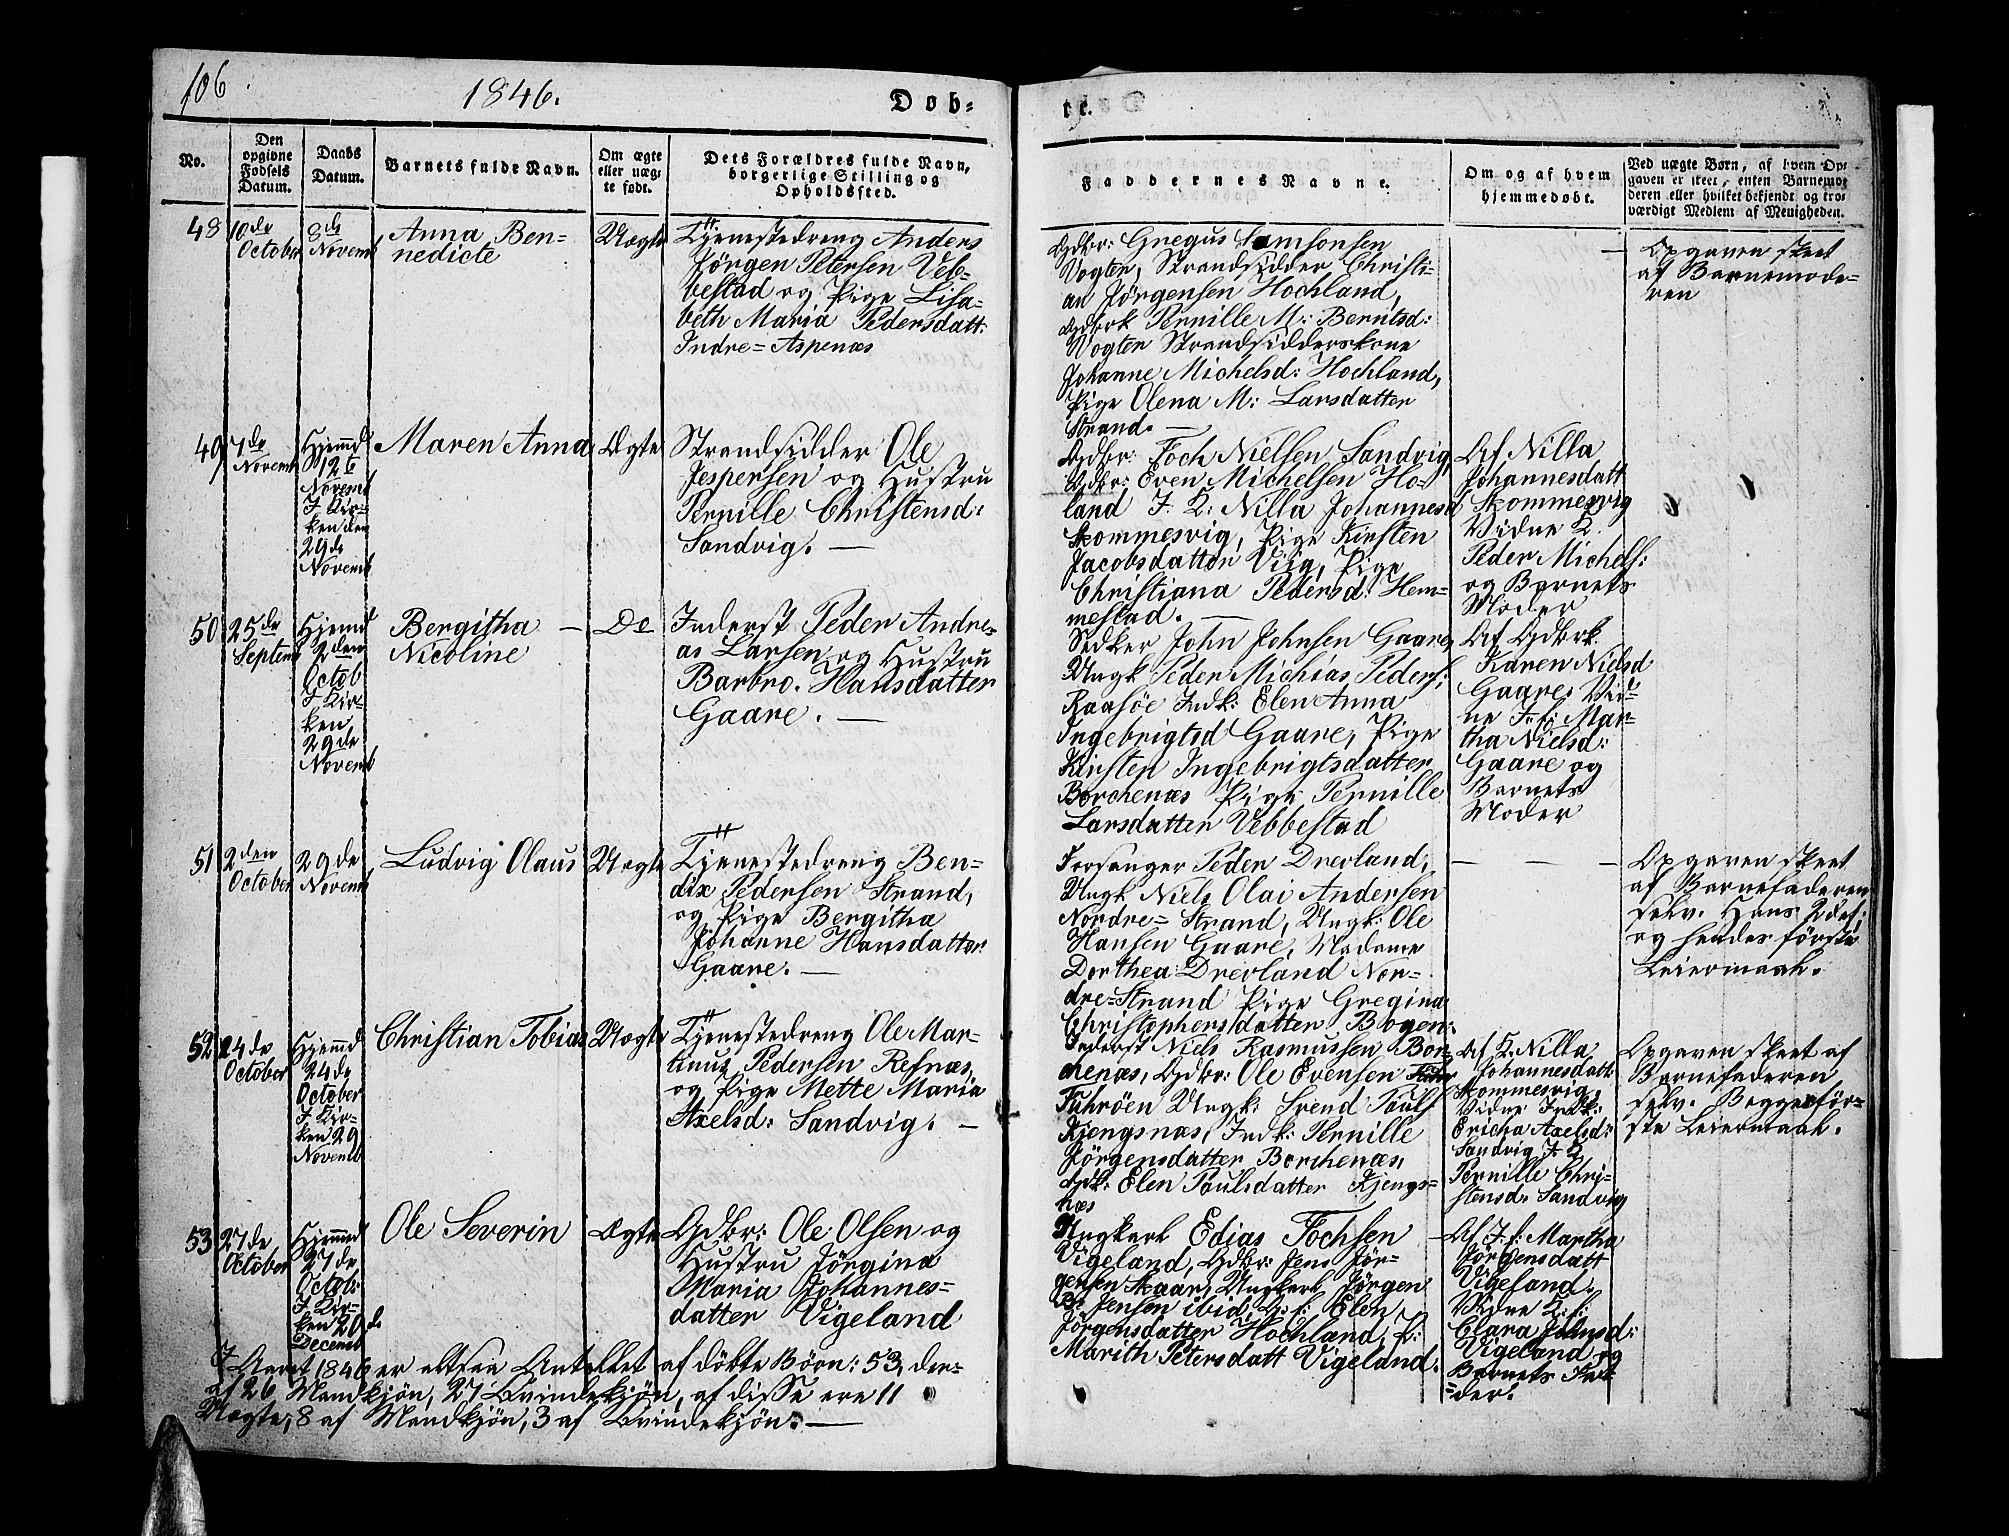 106
1846.
Døb-
te.
No.
Den opgivne Fødsels Datum.
Daabs Datum.
Barnets fulde Navn.
Om ægte eller uæg-te født.
Dets Forældres fulde Navn, borgerlige Stilling og Opholdssted.
Faddernes Navne.
Om og af hvem hjemmedøbt.
Ved uægte Børn, af hvem Op-
gaven er skeet, enten Barnemo-
deren eller hvilket bekjendt og tro-
værdigt Medlem af Menigheden.
48
10de
October
8de
Novemb
Anna Ben-
nedicte
Uægte
Tjenestedreng Anders
Jörgen Petersen Veb-
bestad og Pige Lisa-
beth Maria Pedersdatt:
Indre=Aspenæs
Gdbr: Gregus Samsonsen
Vogten, Strandsidder Christi-
an Jörgensen Hochland,
Gdbrk Pernille M: Berntsd:
Vogten Strandsidderskone
Johanne Michelsd: Hochland,
Pige Olena M: Larsdatter
Strand. —
—
Opgaven skeet
af Barnemode-
ren
49
7de
Novemb
Hjemmd
12te
Novemb
I Kir-
ken den
29de
Novemb
Maren Anna
Ægte
Strandsidder Ole
Jespersen og Hustru
Pernille Christensd:
Sandvig. —
Gdbr: Foch Nielsen Sandvig,
Gdbr: Even Michelsen Ho-
land I. K: Nilla Johannesd
Skommesvig, Pige Kirsten
Jacobsdatter Viig, Pige
Christiana Pedersd: Hem-
mestad. —
Af Nilla
Johannesdatt
Skommesvig
Vidne K.
Peder Michels:
og Barnets
Moder
50
25de
Septemb
Hjemd
2den
Octob
I Kir-
ken
29de
Novemb
Bergitha —
Nicoline
Do
Inderst Peder Andre-
as Larsen og Hustru
Barbro. Hansdatter
Gaare. —
Sedker John Johnsen Gaare,
Ungk Peder Michias Peders:
Raasöe Indk: Elen Anna
Ingebrigtsd Gaare, Pige
Kirsten Ingebrigtsdatter
Borchenæs Pige Pernille
Larsdatter Vebbestad
Af Gdbrk
Karen Nielsd
Gaare. Vid-
ne I. f: Mar-
tha Nielsd:
Gaare og
Barnets
Moder
51
2den
October
29de
Novemb
Ludvig Olaus
Uægte
Tjenestedreng Ben-
dix Pedersen Strand,
og Pige Bergitha
Johanne Hansdatter
Gaare. —
Forsanger Peder Drevland,
Ungk Niels Olai Andersen
Nordre=Strand, Ungk: Ole
Hansen Gaare, Madame
Dorthea Drevland Nor-
dre=Strand Pige Gregina
Christophersdatter Bogen:
— — —
Opgaven skeet
af Barnefaderen
selv. Hans 2det
og hendes første
Leiermaal.
52
24de
October
Hjemmd
24de
October
I Kir-
ken 29
Novemb
Christian Tobias
Uægte
Tjenestedreng Ole Mar-
tinus Pedersen Refnæs,
og Pige Mette Maria
Axelsd: Sandvig. —
Inderst Niels Rasmussen Bor-
chenæs, Gdbr: Ole Evensen
Fuhröen Ungk: Svend Pouls
Kjengsnæs, Indk: Pernille
Jörgensdatter Borchenæs,
Gdk: Elen Poulsdatter Kjengs-
næs
Af K: Nilla
Johannesdatt
Skommesvig,
Vidne Indk:
Ericha Axelsd:
Sandvig I. K
Pernille Chri-
stensd: Sandvig
Opgaven skeet af
Barnefaderen
selv. Begges før-
ste Leiermaal.
53
27de
October
Hjemmd
27de
Octob:
I Kir-
ken 20de
Decemb
Ole Severin
Ægte
Gdbr: Ole Olsen og
Hustru Jörgina
Maria Johannes-
datter Vigeland
Ungkarl Edias Fochsen
Vigeland, Gdbr: Jens Jör-
gensen Skaar, Ungkarl Jörgen
Jensen ibid, G. f: Elen
Jörgensdatter Hochland, K:
Marith Petersdatt Vigeland.
Af I. f: Martha
Jörgensdatt
Vigeland.
Vidne K. f:
Clara Johnsd:
Vigeland og
Barnets Fa-
der.
I Aaret 1846 er altsaa Antallet af döbte Börn: 53, der-
af 26 Mandkjön, 27 Qvindekjön, af disse ere 11
Uægte, 8 af Mandkjön, 3 af Qvindekjön. —